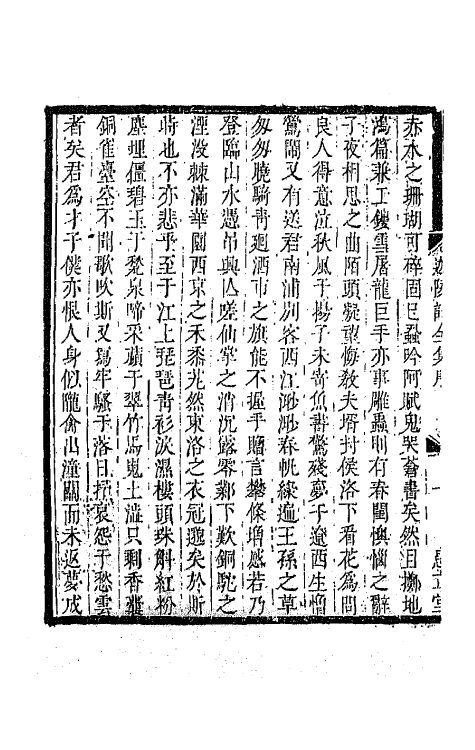 赤水之珊瑚可碎固已蟲吟阿賦鬼哭蒼書矣然且擲地
鴻篇兼工鏤雪屠龍巨手亦事雕蟲則有春閨懊惱之辭
子夜相思之曲陌頭凝望悔教夫壻封侯洛下看花為問
良人得意泣秋風于揚子未寄魚書驚殘夢于遼西生憎
鶯鬧又有送君南浦别客西江渺渺春帆綠遍王孫之草
匆匆曉騎靑廻酒市之旗能不握手贈言攀條增感若乃
登臨山水憑弔興亾嗟仙掌之消沉露零鄴下歎銅駝之
湮没棘滿華園西京之禾黍芃然東洛之衣冠邈矣於斯
時也不亦悲乎至于江上琵琶靑衫淚濕樓頭珠斛紅粉
塵埋僵碧玉于兔泉啼采蘋于翠竹馬嵬土澁只剩香囊
銅雀臺空不聞歌吹斯又寫牢騷于落日招哀怨于愁雲
者矣君為才子僕亦恨人身似隴禽出潼關而未返夢成
全集序